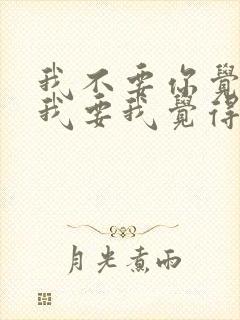 我不要你覺
我要我覺得
月光煮雨